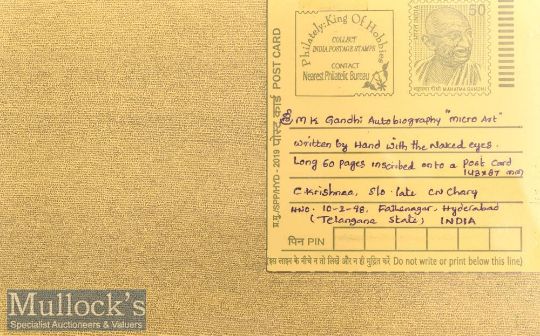 50
भारत INDIA
Philately: King Of Hobbies
COLLECT
INDIA POSTAGE STAMPS
CONTACT
Nearest Philatelic Bureau
महात्मा गाँधी MAHATMA GANDHI
पोस्ट कार्ड POST CARD
M K Gandhi Autobiography "micro Art"
written by Hand with the Naked eyes.
Long 60 pages inscribed onto a Post Card
C Krishnaa, S/o late CN Chary
HNO. 10-2-98, Fathenagar, Hyderabad
(Telangana State) INDIA
पिन PIN
इस लाइन के नीचे न तो लिखें और न ही मुद्रित करें Do not write or print below this line)
प्र.मु./SPP/HYD - 2019
Mullock's
Specialist Auctioneers & Valuers